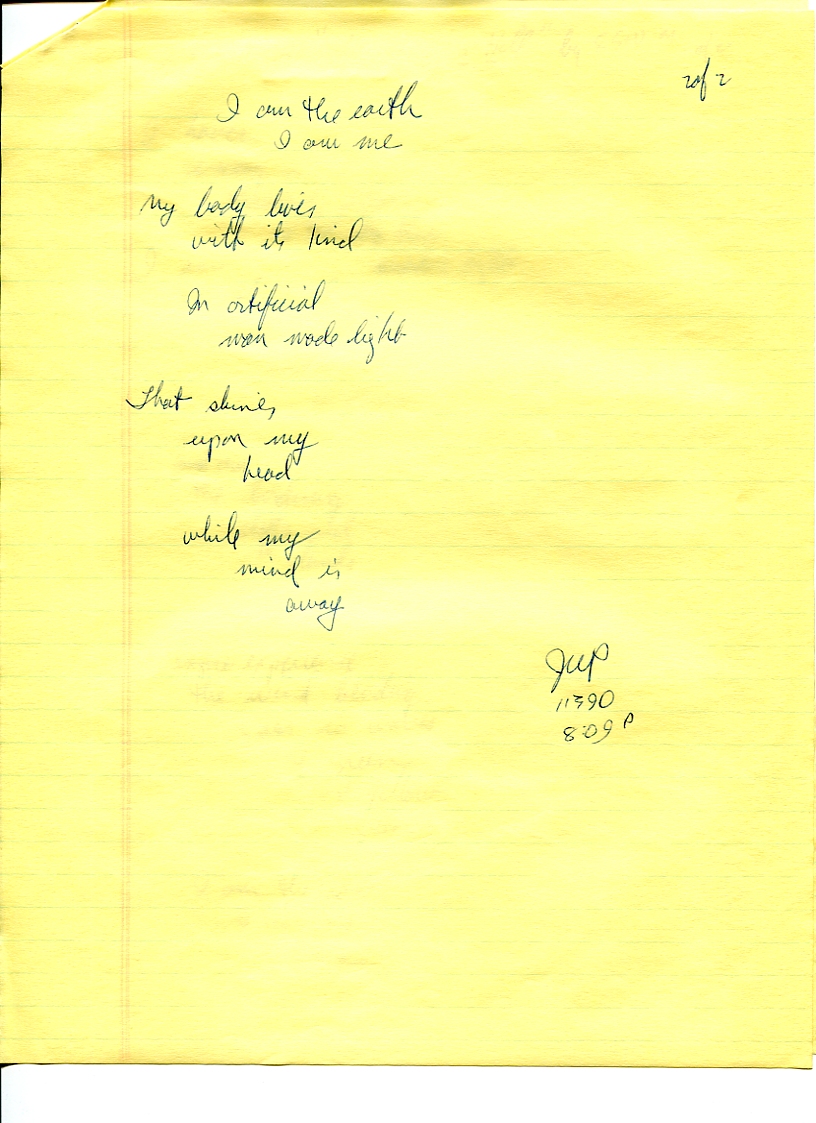 2 of 2
I am the earth
I am me
My body lives
with its kind
In artificial
man made light
That shines
upon my
head
while my
mind is
away
JWP
11390
8:09 P